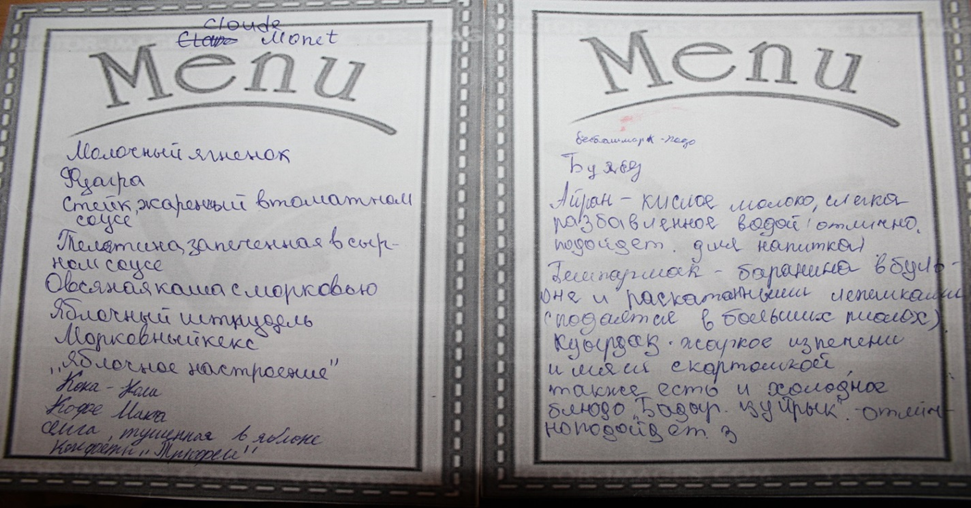 Cloude
Monet
Menu
Молочный ягненок
Фуагра
Стейк, жаренный в томатном
соусе
Телятина, запеченная в сыр-
ном соусе
Овсяная каша с морковью
Яблочный штрудель
Морковный кекс
„Яблочное настроение"
Кока-Кола
Кофе Мока
тушенная в яблоке
Конфеты
Menu
Айран - кислое молоко, слегка
разбавленное водой (отлично
подойдет для напитка)
баранина в буль-
оне и раскатанными лепешками
(подается в больших пиалах).
Куырдак - жаркое из печени
и мяса с картошкой,
также есть и холодное
блюдо
ноподойдет з